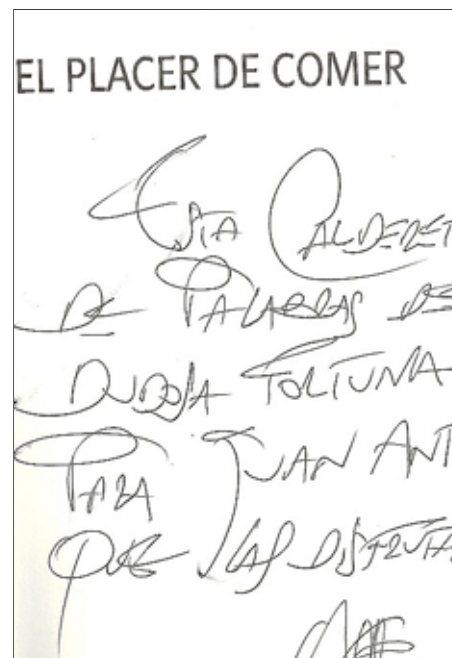 EL PLACER DE COMER
Esta CALDERET
DE PALABRAS DE
DUDOSA FORTUNA
PARA JUAN ANT
QUE LAS DISFRUTA